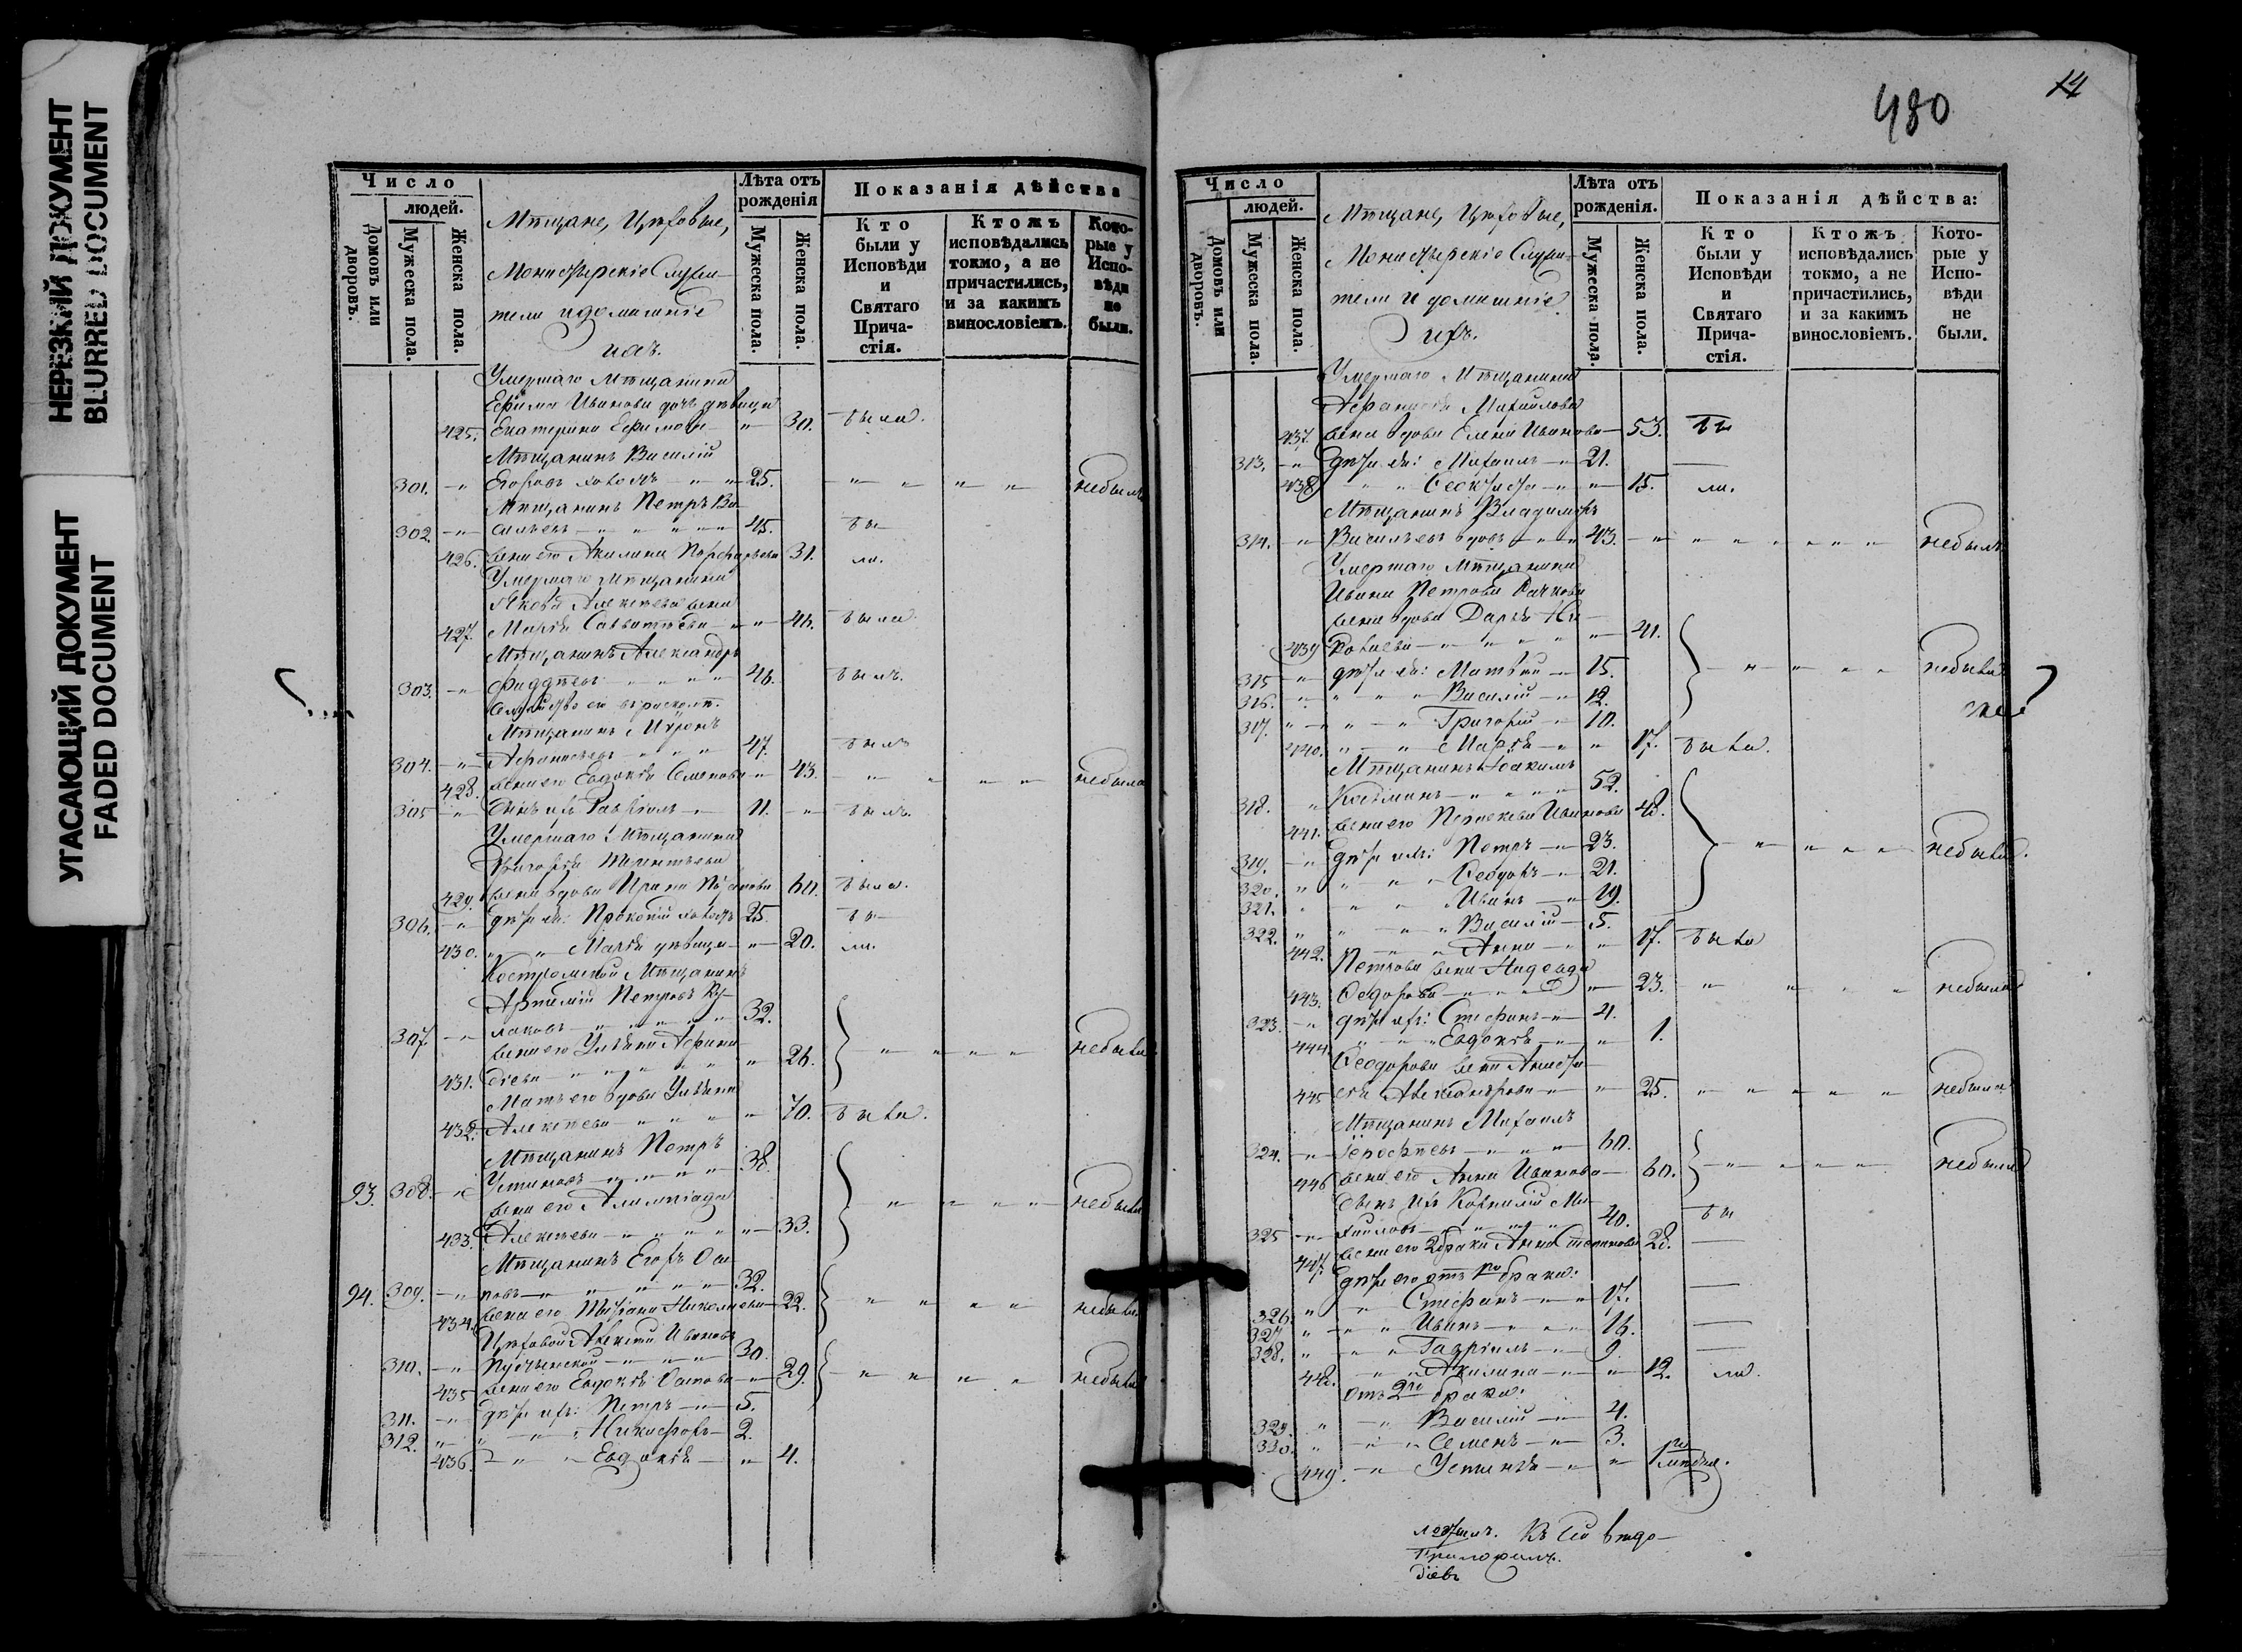 НЕРЕЗКИЙ ДОКУМЕНТ
BLURRED DOCUMENT
УГАСАЮЩИЙ ДОКУМЕНТ
FADED DOCUMENT
Число
людей.
Домовъ или дворовъ.
Мужеска пола.
Женска пола.
Мѣщане, Цѣховые,
Монастырскіе Служи-
тели и домашніе
ихъ.
Лѣта отъ рожденія
Мужеска пола.
Женска пола.
Показанія дѣйства
Кто были у Исповѣди и Святаго Прича-стія.
Ктожъ исповѣдались токмо, а не причастились, и за какимъ винословіемъ.
Кото-рые у Испо-вѣди не были.
Умершаго Мѣщанина
Ефима Иванова дочь девица
425. Екатерина Ефимова 30. была.
Мѣщанинъ Василій
301. Егоровъ холостъ 25. небылъ
Мѣщанинъ Петръ Ва-
302. сильевъ 45. бы-
426. жена его Акилина Порфирьева 31. ли.
Умершаго Мѣщанина
Якова Алексѣева жена
427. Марья Савватѣева 46. была
Мѣщанинъ Александръ
303. Фаддѣевъ 46. былъ.
Семейство его въ расколѣ.
Мѣщанинъ Миронъ
304. Афанасьевъ 47. былъ
428. жена его Евдокія Семенова 43. небыла
305 Сынъ ихъ Гавріилъ 11. былъ.
Умершаго Мѣщанина
Григорья Терентьева
429. жена вдова Ирина 60. была.
306. дѣти ея: Прокопій холостъ 25. бы-
430. Марья девица 20. ли.
Костромской Мѣщанинъ
Артемій Петровъ Ку-
307. лаковъ 32.
жена его Ульяна Афана-
431. сіева 26. небыли
Мать его вдова Ульяна
432. Алексѣева 70. была.
Мѣщанинъ Петръ
93. 308. Устиновъ 38.
жена его Алимпіада
433. Алексѣева 33. небыли
Мѣщанинъ Егоръ Оси-
94. 309. повъ 32.
434. жена его Татьяна Николаева 22. небыли
Цѣховой Алексѣй Ивановъ
310. 30.
435 жена его Евдокія Осипова 29. небыли
311. дѣти ихъ: Петръ 5.
312. Никифоръ 2.
436. Евдокія 4.
480
14
Число
людей.
Домовъ или дворовъ.
Мужеска пола.
Женска пола.
Мѣщане, Цѣховые,
Монастырскіе Служи-
тели и домашніе
ихъ.
Лѣта отъ рожденія.
Мужеска пола.
Женска пола.
Показанія дѣйства:
Кто были у Исповѣди и Святаго Прича-стія.
Ктожъ исповѣдались токмо, а не причастились, и за какимъ винословіемъ.
Кото-рые у Испо-вѣди не были.
Умершаго Мѣщанина
Афанасья Михайлова
437. жена вдова Елена Иванова 53. бы
313. дѣти ея: Михаилъ 21.
438 Феоктиста 15. ли.
Мѣщанинъ Владиміръ
314. Васильевъ вдовъ 43. небылъ
Умершаго Мѣщанина
Ивана Петрова
жена вдова Дарья Я-
439 ковлева 41.
315 дѣти ея: Матвѣй 15. небыли
316. Василій 12.
317. Григорій 10.
440. Марья 17. была.
Мѣщанинъ Іоакимъ
318. Косьминъ 52.
441. жена его Прасковья Иванова 48.
319. дѣти ихъ: Петръ 23. небыли.
320. Феодоръ 21.
321. Иванъ 19.
322. Василій 5.
442. Анна 17. была
Петрова жена Надежда
443. Федорова 23. небыла
323. дѣти ихъ: Стефанъ 4.
444. Евдокія 1.
Феодорова жена Анаста-
445 сія Александрова 25. небыла
Мѣщанинъ Михаилъ
324. Іерофѣевъ 60.
446 жена его Анна Иванова 60. небыли
Сынъ ихъ Корнилій Ми-
325 хайловъ 40. бы
447. жена его 2 брака Анна 28.
дѣти его отъ 1го брака:
326. Стефанъ 17.
327 Иванъ 16.
328. Гавріилъ 9.
448. Акилина 12. ли.
Отъ 2го брака:
329. Василій 4.
330. Семенъ 3.
449. Устинья 1
Къ сей вѣдо-